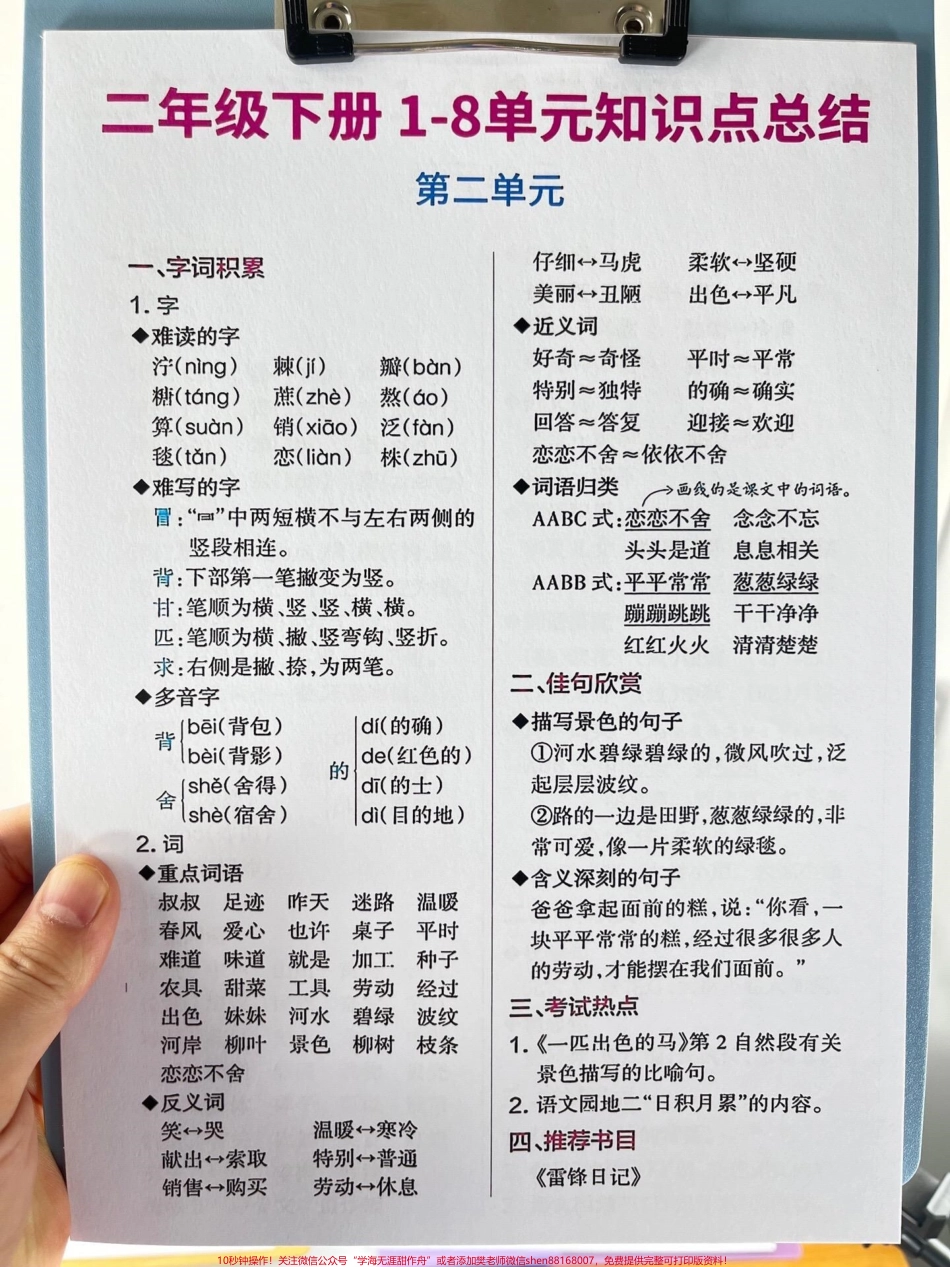 二年级下册 1-8单元知识点总结
第二单元
一、字词积累
1. 字
◆难读的字
泞(nìng) 棘(jí) 瓣(bàn)
糖(táng) 蔗(zhè) 熬(áo)
算(suàn) 销(xiāo) 泛(fàn)
毯(tǎn) 恋(liàn) 株(zhū)
◆难写的字
冒:“冃”中两短横不与左右两侧的
竖段相连。
背:下部第一笔撇变为竖。
甘:笔顺为横、竖、竖、横、横。
匹:笔顺为横、撇、竖弯钩、竖折。
求:右侧是撇、捺,为两笔。
◆多音字
背 bēi(背包) bèi(背影)
舍 shě(舍得) shè(宿舍)
的 dí(的确) de(红色的) dī(的士) dì(目的地)
2. 词
◆重点词语
叔叔 足迹 昨天 迷路 温暖
春风 爱心 也许 桌子 平时
难道 味道 就是 加工 种子
农具 甜菜 工具 劳动 经过
出色 妹妹 河水 碧绿 波纹
河岸 柳叶 景色 柳树 枝条
恋恋不舍
◆反义词
笑↔哭 温暖↔寒冷
献出↔索取 特别↔普通
销售↔购买 劳动↔休息
仔细↔马虎 柔软↔坚硬
美丽↔丑陋 出色↔平凡
◆近义词
好奇≈奇怪 平时≈平常
特别≈独特 的确≈确实
回答≈答复 迎接≈欢迎
恋恋不舍≈依依不舍
◆词语归类
画线的是课文中的词语。
AABC 式:恋恋不舍 念念不忘
头头是道 息息相关
AABB 式:平平常常 葱葱绿绿
蹦蹦跳跳 干干净净
红红火火 清清楚楚
二、佳句欣赏
◆描写景色的句子
①河水碧绿碧绿的,微风吹过,泛
起层层波纹。
②路的一边是田野,葱葱绿绿的,非
常可爱,像一片柔软的绿毯。
◆含义深刻的句子
爸爸拿起面前的糕,说:“你看,一
块平平常常的糕,经过很多很多人
的劳动,才能摆在我们面前。”
三、考试热点
1.《一匹出色的马》第 2 自然段有关
景色描写的比喻句。
2. 语文园地二“日积月累”的内容。
四、推荐书目
《雷锋日记》
10秒钟操作！关注微信公众号“学海无涯甜作舟”或者添加樊老师微信shen88168007，免费提供完整可打印版资料！